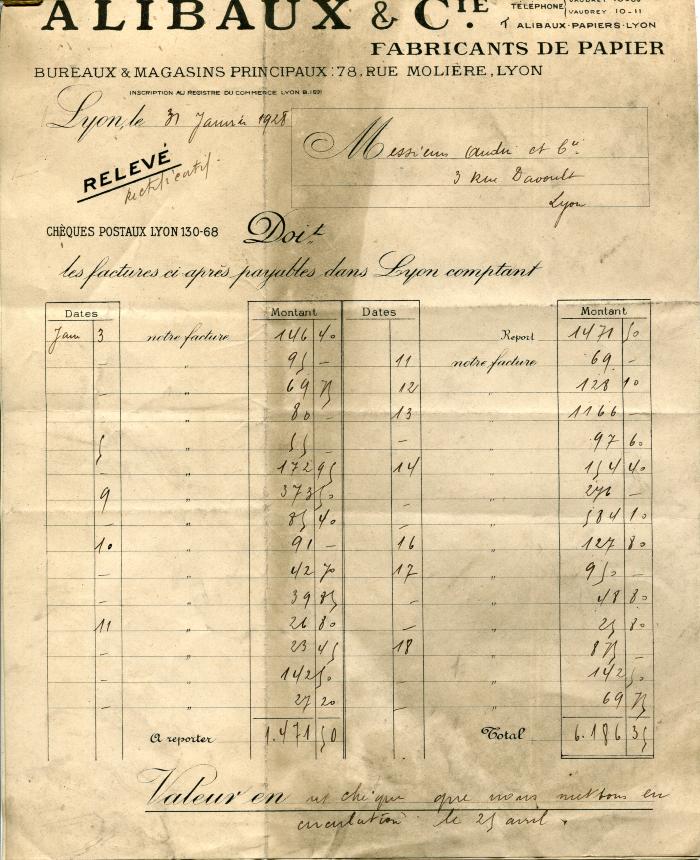 ALIBAUX & CIE.
TÉLÉPHONE
VAUDREY 10-11
ALIBAUX-PAPIERS-LYON
FABRICANTS DE PAPIER
BUREAUX & MAGASINS PRINCIPAUX : 78, RUE MOLIÈRE, LYON
INSCRIPTION AU REGISTRE DU COMMERCE LYON B.1591
Lyon, le 31 Janvier 1928
Messieurs André et Cie
3 Rue Davoult
Lyon
RELEVÉ
rectificatif.
CHÈQUES POSTAUX LYON 130-68
Doit
les factures ci-après payables dans Lyon comptant
Dates Montant Dates Montant
Janv 3 notre facture 146 40 Report 1471 50
- " 95 - 11 notre facture 69 -
- " 69 75 12 " 128 10
- " 80 - 13 " 1166 -
5 " 55 - - " 97 60
- " 172 95 14 " 154 40
9 " 373 50 - " 276 -
- " 85 40 - " 584 10
10 " 91 - 16 " 127 80
- " 42 70 17 " 950 -
- " 39 85 - " 48 80
11 " 26 80 - " 25 80
- " 23 45 18 " 875 -
- " 142 50 - " 142 50
- " 27 20 - " 69 75
A reporter 1.471 50 Total 6.186 35
Valeur en un chèque que nous mettons en
circulation le 25 avril.